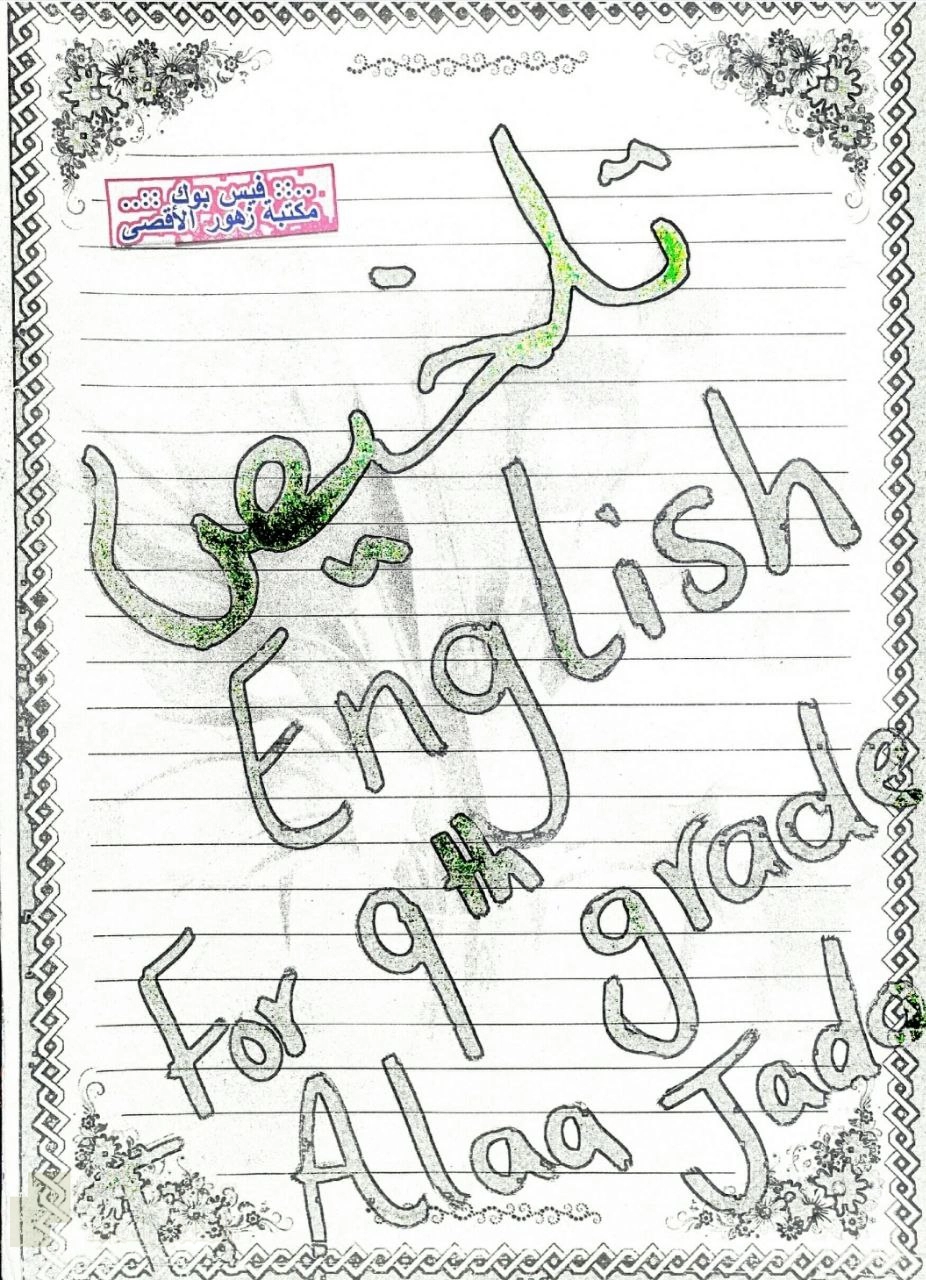 ..::: فيس بوك :::..
مكتبة زهور الأقصى
تلخيص
English
For 9th grade
Alaa Jada